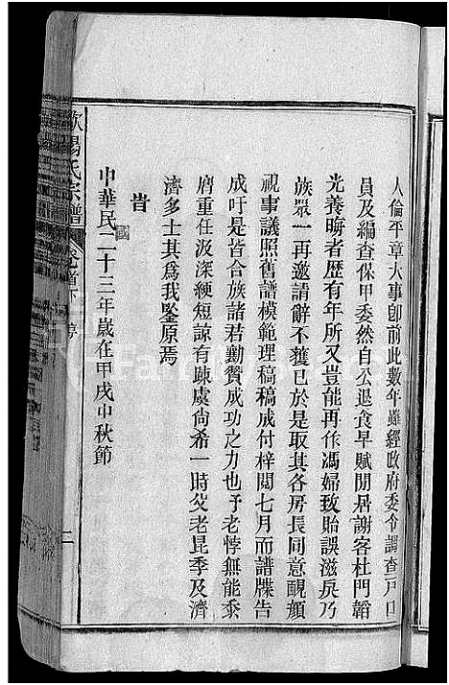 人倫平章大事卽前此數年雖經政府委令調查戸口
員及編查保甲委然自公退食早賦閒居謝客杜門韜
光養晦者歷有年所又豈能再作馮婦致貽誤滋戾乃
族眾一再邀請辭不獲已於是取其各房長同意靦顏
視事議照舊譜模範理稿稿成付梓閱七月而譜牒告
成吁是皆合族諸君勷贊成功之力也予老悖無能忝
膺重任汲深綆短諒有踈處尙希一時父老昆季及濟
濟多士其爲我鑒原焉
旹
中華民國二十三年歲在甲戌中秋節
陽氏宗譜
首下
二